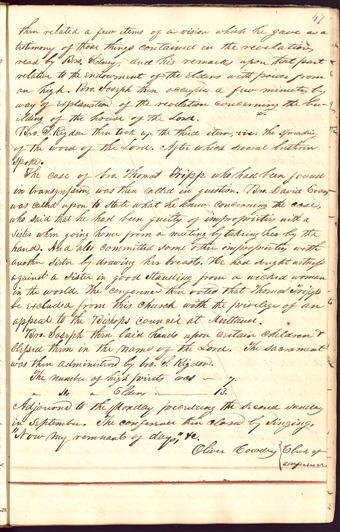 47
then related a few items of a vision which he gave as a
testimony of those things contained in the revelation
read by Bro. Sidney, and his remarks upon that point
relative to the endowment of the elders with power from
on high. Bro. Joseph then occupies a few minutes by
way of explanation of the revelation concerning the bu-
ilding of the house of the Lord.
Bro. S. Rigdon then took up the third item, viz: the spreading
of the word of the Lord. After which several brethren
spoke.
The case of bro. Thomas Tripp who had been found
in transgression was then called in question. Bro. David Evans
was called upon to state what he knew concerning the case,
who said that he had been guilty of improprieties with a
Sister when going home from a meeting by taking her by the
hand. And also committed some other improprieties with
another Sister by drawing his breasts. He had sought witness
against a Sister in good Standing from a wicked woman
in the world. The conference then voted that Thomas Tripp
be excluded from this Church with the privilege of an
appeal to the Bishops council at Kirtland.
Bro. Joseph then laid hands upon certain children &
blessed them in the name of the Lord. The sacrament
was then administered by bro. S. Rigdon.
The number of high priests was — 7.
" Do " Elders — 13.
Adjourned to the Monday preceeding the second Sunday
in September. The conference then closed by Singing,
"Now my remnant of days," &c.
Oliver Cowdery { Clerk of
conference